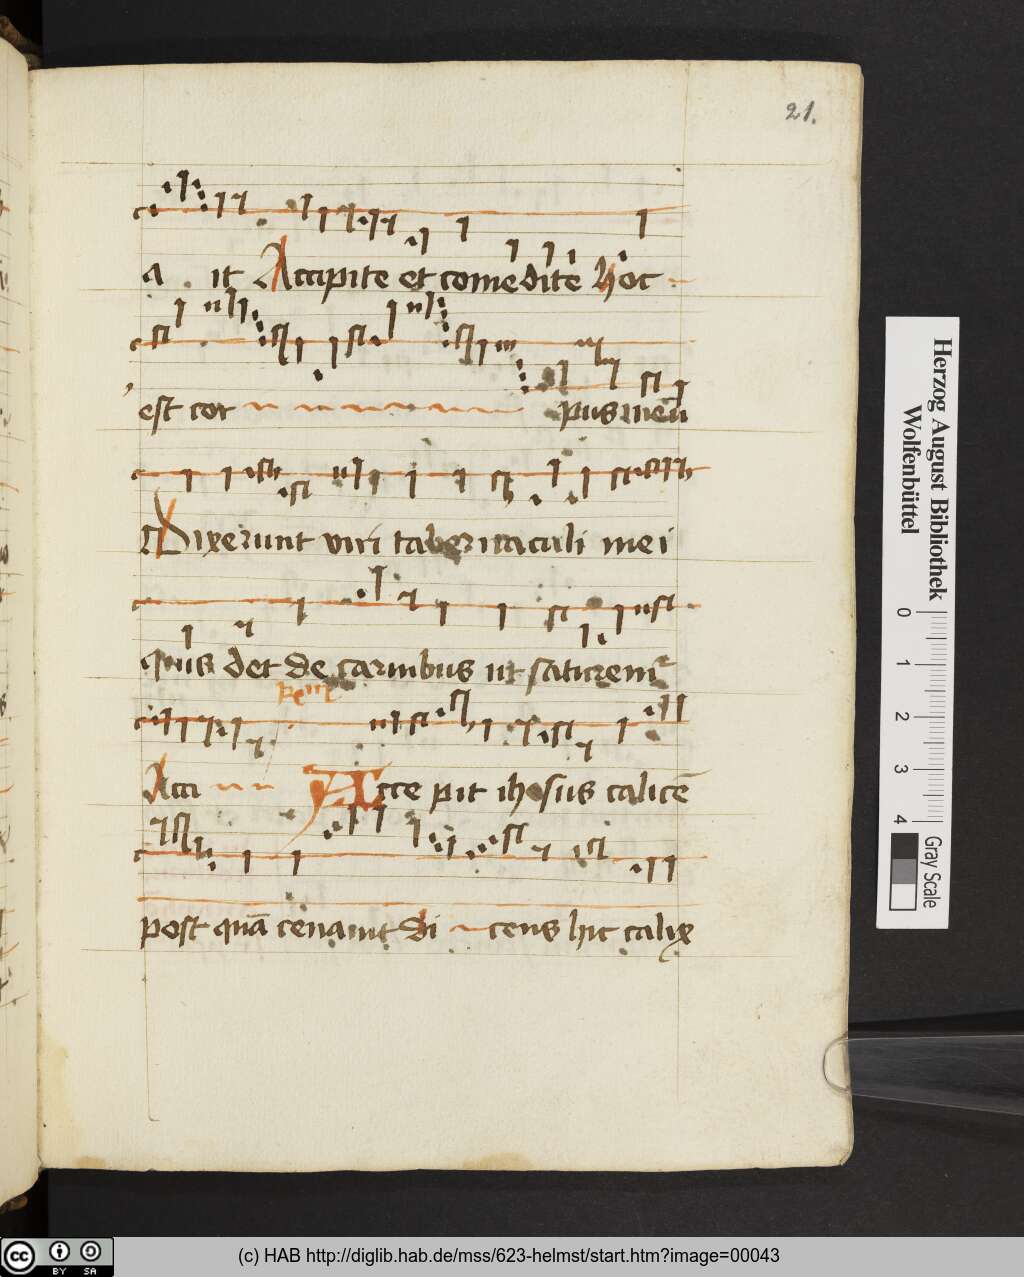 21.
a it Accipite et comedite hoc
est cor pus meū
Dixerunt viri tabernaculi mei
quis det de carnibus ut saturem²
Acci Accepit ihesus calicē
post quā cenauit di cens hic calix
Herzog August Bibliothek
Wolfenbüttel
0 1 2 3 4
Gray Scale
(c) HAB http://diglib.hab.de/mss/623-helmst/start.htm?image=00043
cc BY SA